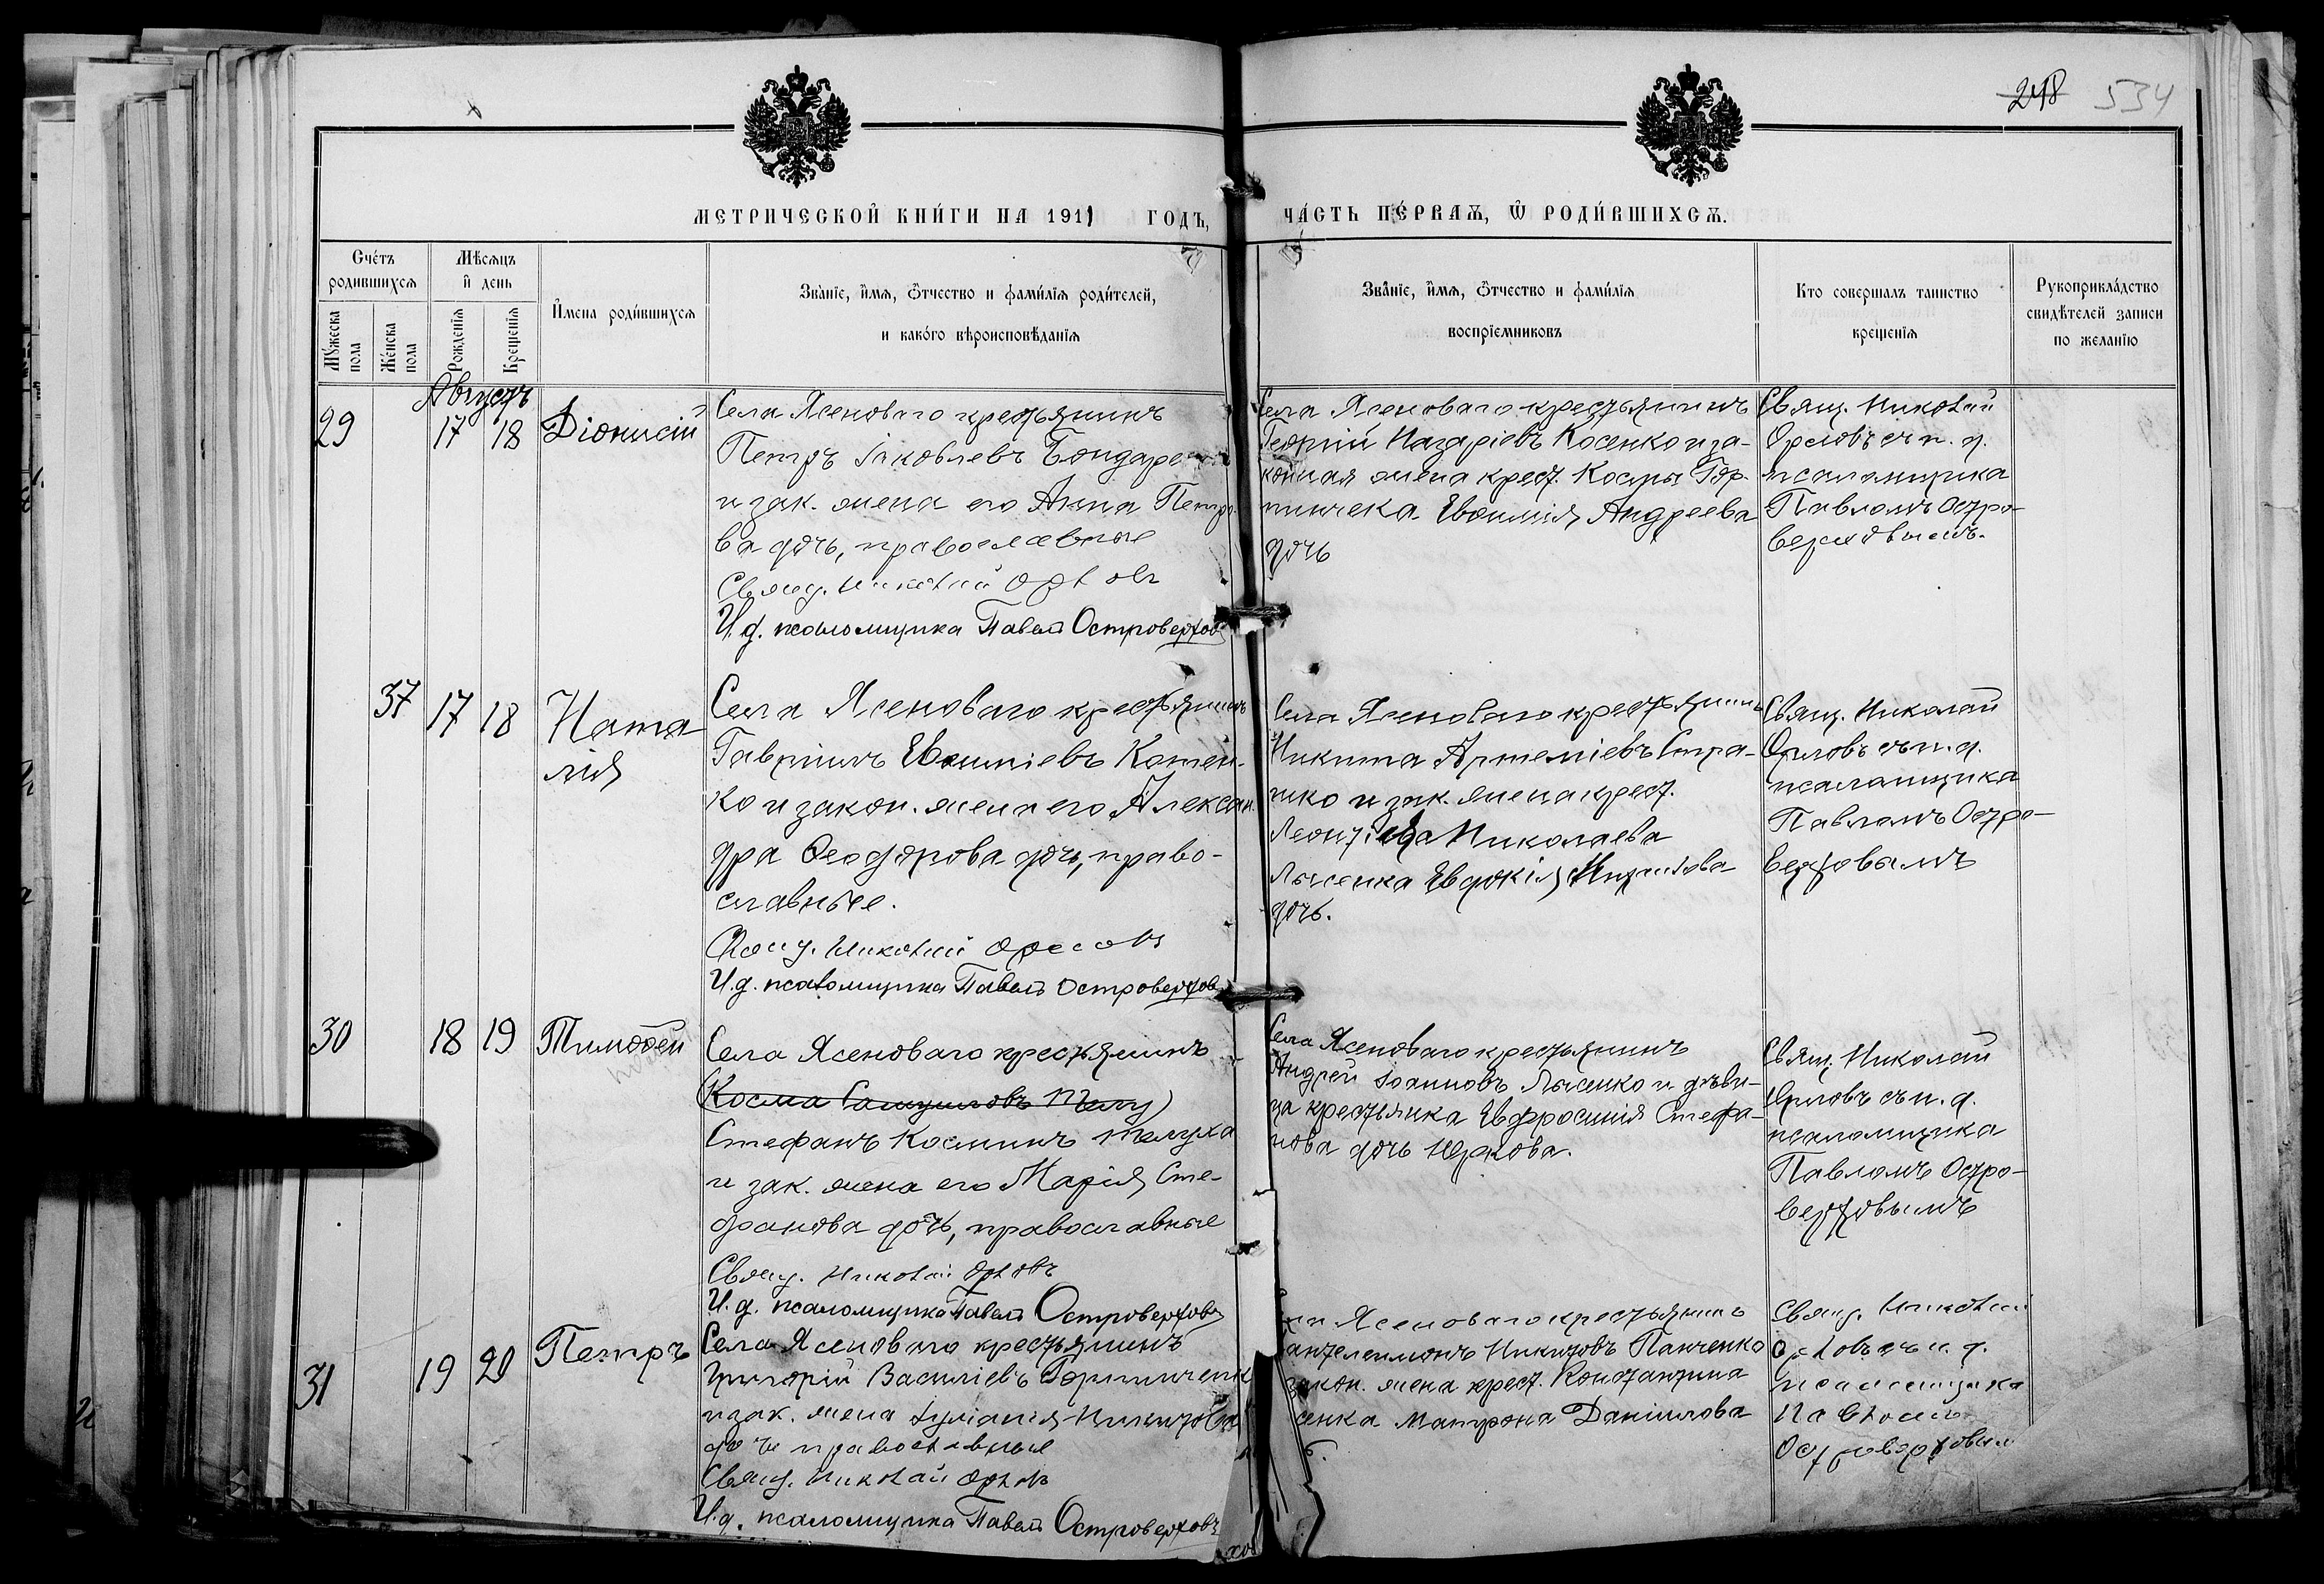 248 534
МЕТРИЧЕСКОЙ КНИ́ГИ НА 1911 ГОДЪ,
ЧА́СТЬ ПЕ́РВАѦ, Ѿ РОДИ́ВШИХСѦ.
Счéтъ родившихсѧ
Мꙋ́жеска пола
Жéнска пола
Мѣсѧцъ и҆ день
Рожденїѧ
Крещенїѧ
И҆мена роди́вшихсѧ
Звáнїе, и҆́мѧ, ѻ҆́тчество и фами́лїѧ роди́телей,
и какóго вѣроисповѣданїѧ
Звáнїе, и҆́мѧ, ѻ҆́тчество и фами́лїѧ
воспрїемниковъ
Кто совершалъ таинство
крещенїѧ
Рукоприклáдство
свидѣ́телей записи
по желанїю
Августъ
29
17 18
Діонисій
Села Ясеноваго крестьянинъ
Петръ Іаковлевъ Бондаре
и зак. жена его Анна Петро-
ва дочь, православные
Свящ. Николай Орловъ
И. д. псаломщика Павелъ Островерховъ
Села Ясеноваго крестьянинъ
Георгій Назаріевъ Косенко и за-
конная жена крест. Космы Гор-
пинчека Евфимія Андреева
дочь
Свящ. Николай
Орловъ съ и. д.
псаломщика
Павломъ Остро-
верховымъ.
37
17 18
Ната-
лія
Села Ясеноваго крестьянинъ
Гавріилъ Евфиміевъ Котен-
ко и закон. жена его Алексан-
дра Феодорова дочь, право-
славные.
Свящ. Николай Орловъ
И. д. псаломщика Павелъ Островерховъ
Села Ясеноваго крестьянинъ
Никита Артеміевъ
и зак. жена крест.
Николаева
Лысенка Евдокія
дочь.
Свящ. Николай
Орловъ съ и. д.
псаломщика
Павломъ Остро-
верховымъ
30
18 19
Тимофей
Села Ясеноваго крестьянинъ
(Косма Самуиловъ Телу)
Стефанъ Косминъ Телуха
и зак. жена его Марія Сте-
фанова дочь, православные
Свящ. Николай Орловъ
И. д. псаломщика Павелъ Островерховъ
Села Ясеноваго крестьянинъ
Андрей Іоанновъ Лысенко и дѣви-
ца крестьянка Евфросинія Стефа-
нова дочь
Свящ. Николай
Орловъ съ и. д.
псаломщика
Павломъ Остро-
верховымъ
31
19 20
Петръ
Села Ясеноваго крестьянинъ
Григорій Василіевъ Горпинченк
и зак. жена Іуліанія Никитова
дочь православные
Свящ. Николай Орловъ
И. д. псаломщика Павелъ Островерховъ
Ясеноваго крестьянинъ
антелеимонъ Никитовъ Панченко
закон. жена крест. Константина
сенка Матрона Даніилова
Свящ. Николай
Орловъ съ и. д.
псаломщика
Павломъ
Островерховым